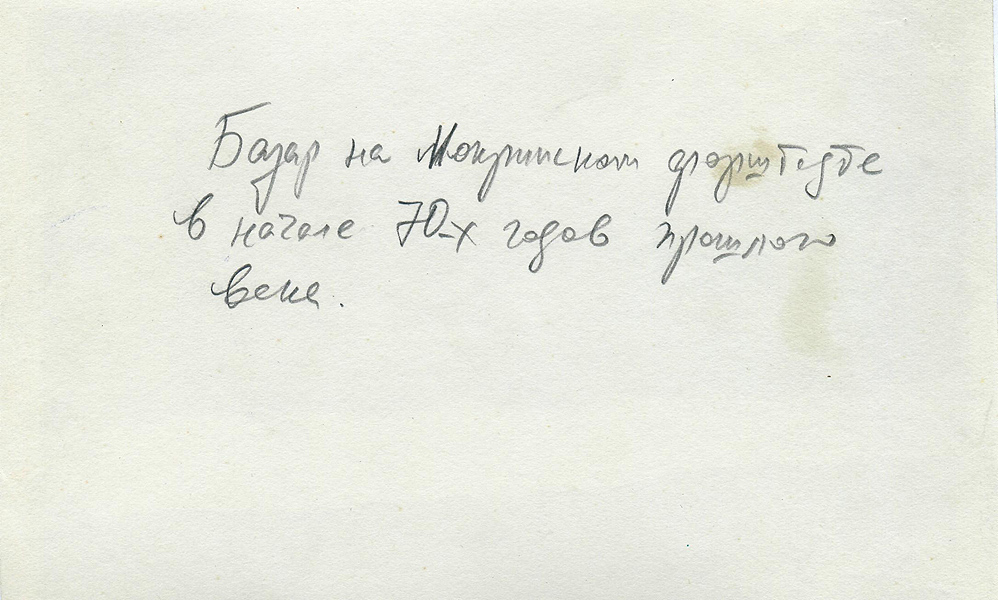 Базар на Мокринском форштадте
в начале 70-х годов прошлого
века.